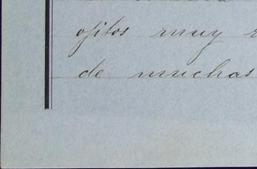 ojitos muy
de muchas